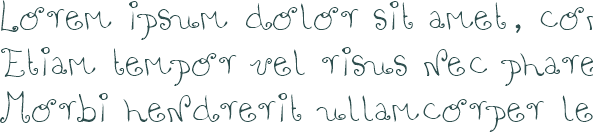 Lorem ipsum dolor sit amet, cor
Etiam tempor vel risus nec phare
Morbi hendrerit ullamcorper le